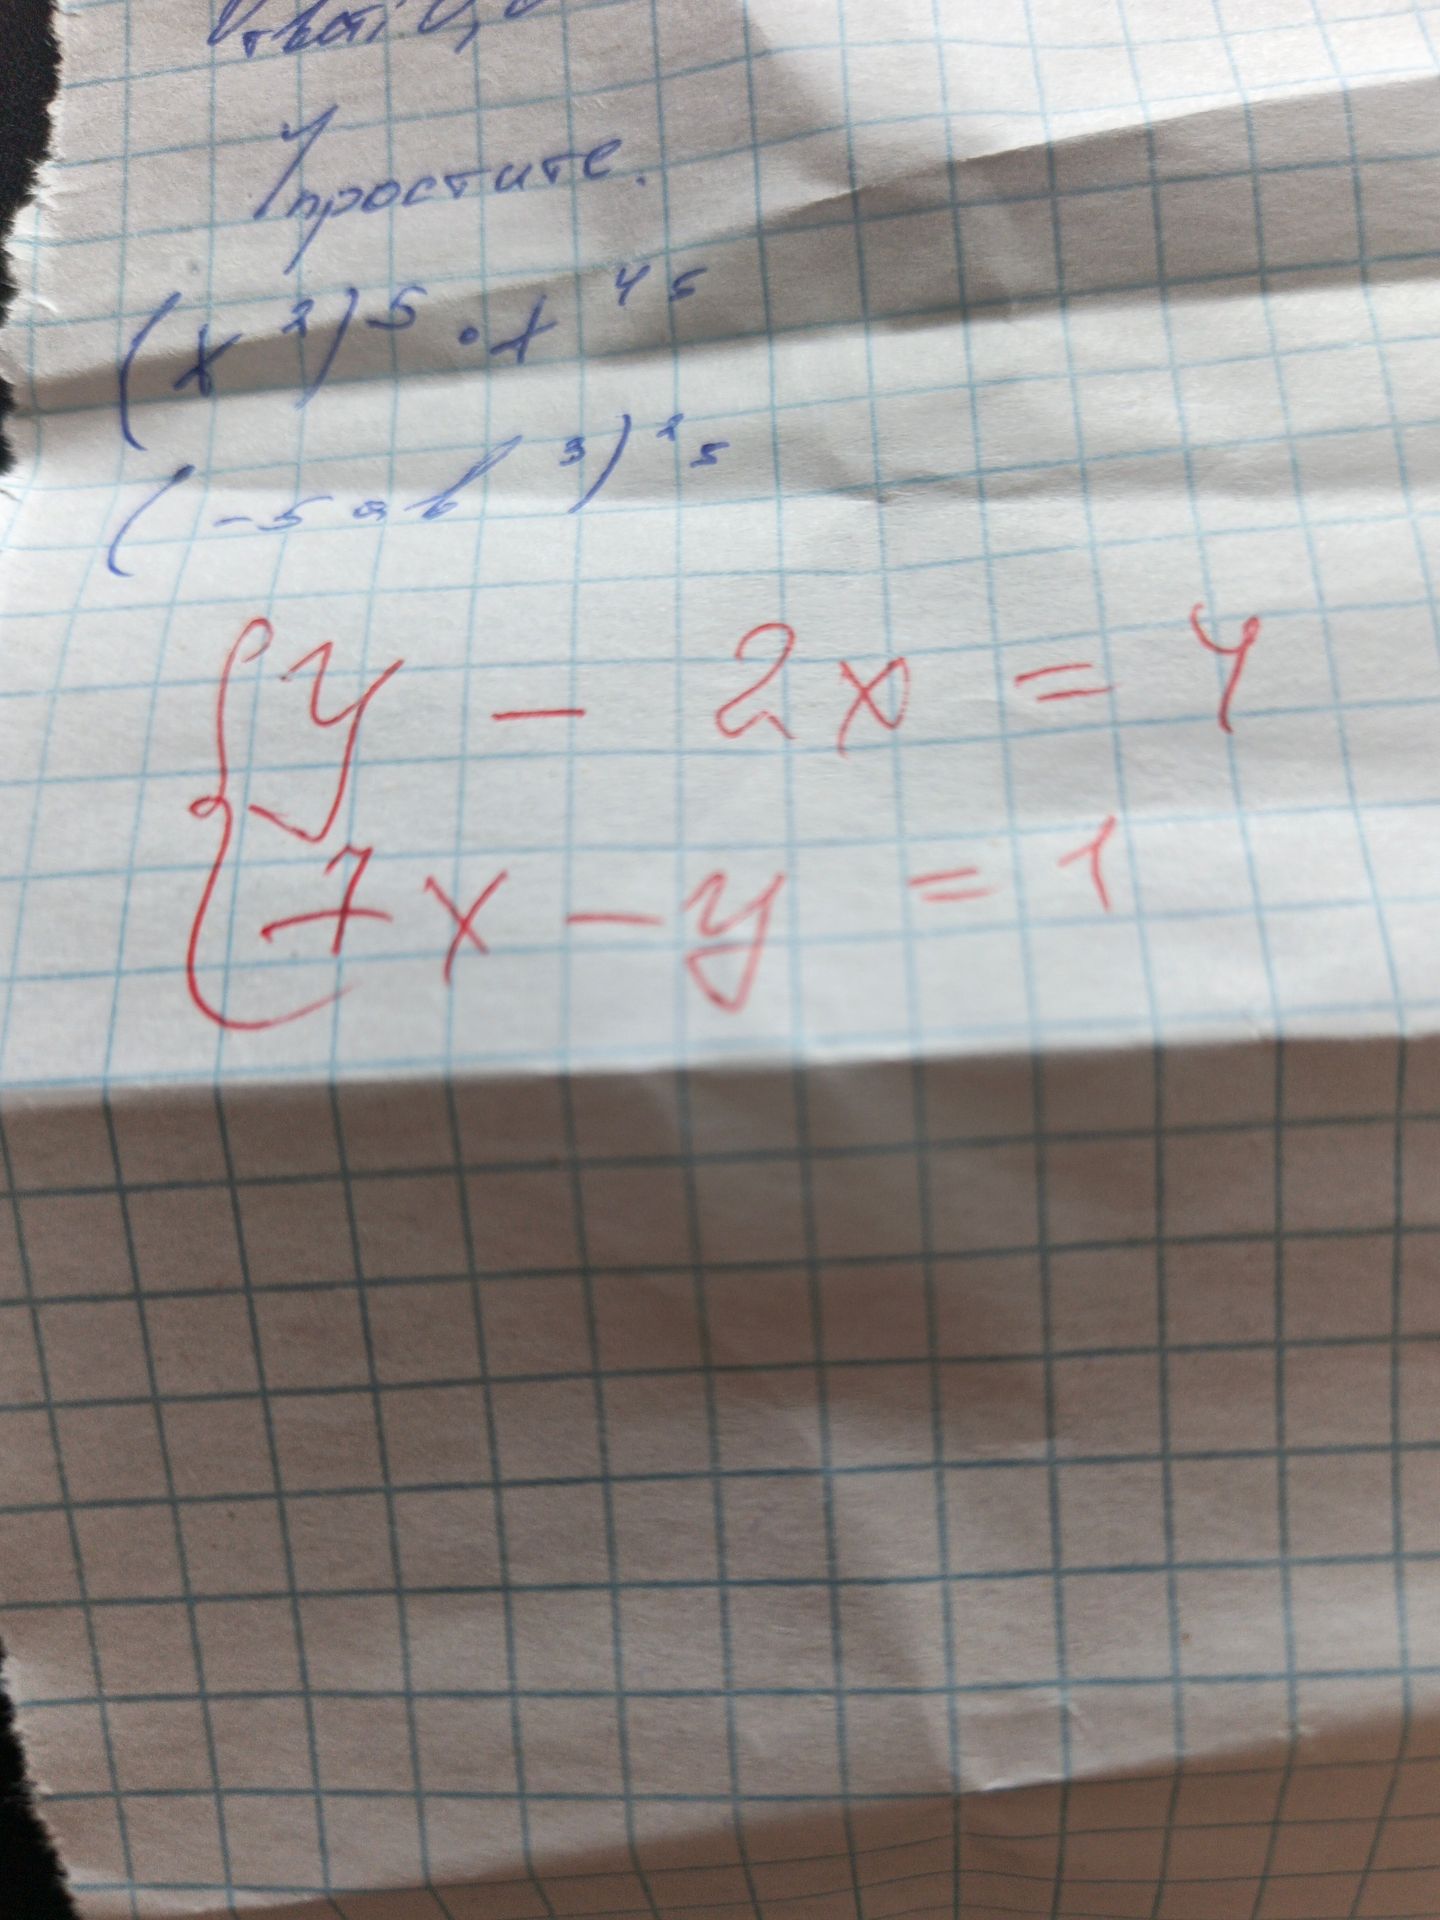 Упростите.
(x²)⁵ · x⁴⁵
(-5ab³)²⁵
{ y - 2x = 4
7x - y = 1